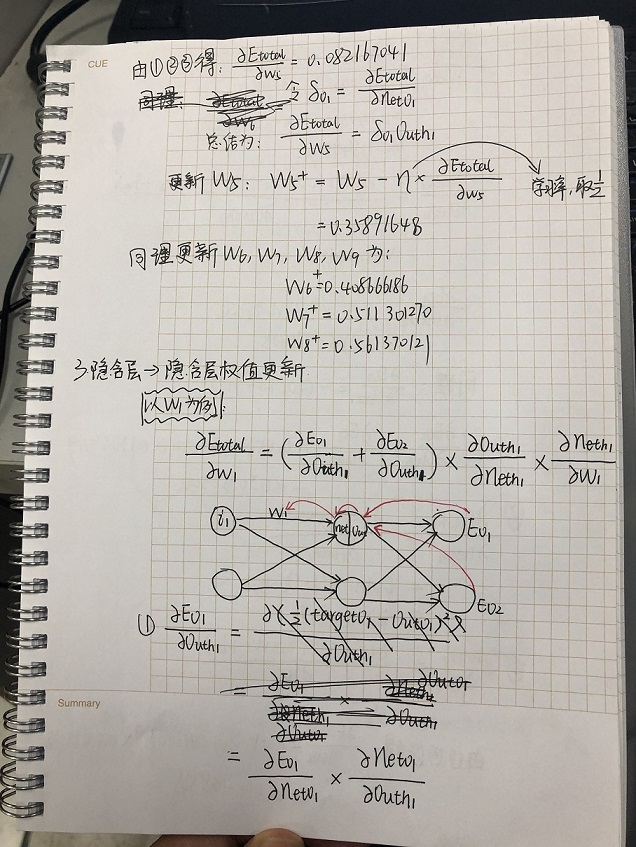 CUE
由①②③得: ∂Etotal/∂w5 = 0.082167041
令 δo1 = ∂Etotal/∂neto1
总结为: ∂Etotal/∂w5 = δo1 Outh1
更新 W5: W5+ = W5 - η × ∂Etotal/∂w5 学习率,取1/2
= 0.35891648
同理更新 W6, W7, W8, W9 为:
W6+ = 0.408666186
W7+ = 0.511301270
W8+ = 0.561370121
3 隐含层→隐含层权值更新
以W1为例:
∂Etotal/∂w1 = (∂Eo1/∂Outh1 + ∂Eo2/∂Outh1) × ∂Outh1/∂Neth1 × ∂Neth1/∂W1
i1 W1 net Out Eo1
Eo2
① ∂Eo1/∂Outh1 = ∂(1/2(targeto1 - Outo1)²)/∂Outh1
= ∂Eo1/∂Neto1 × ∂Neto1/∂Outh1
Summary